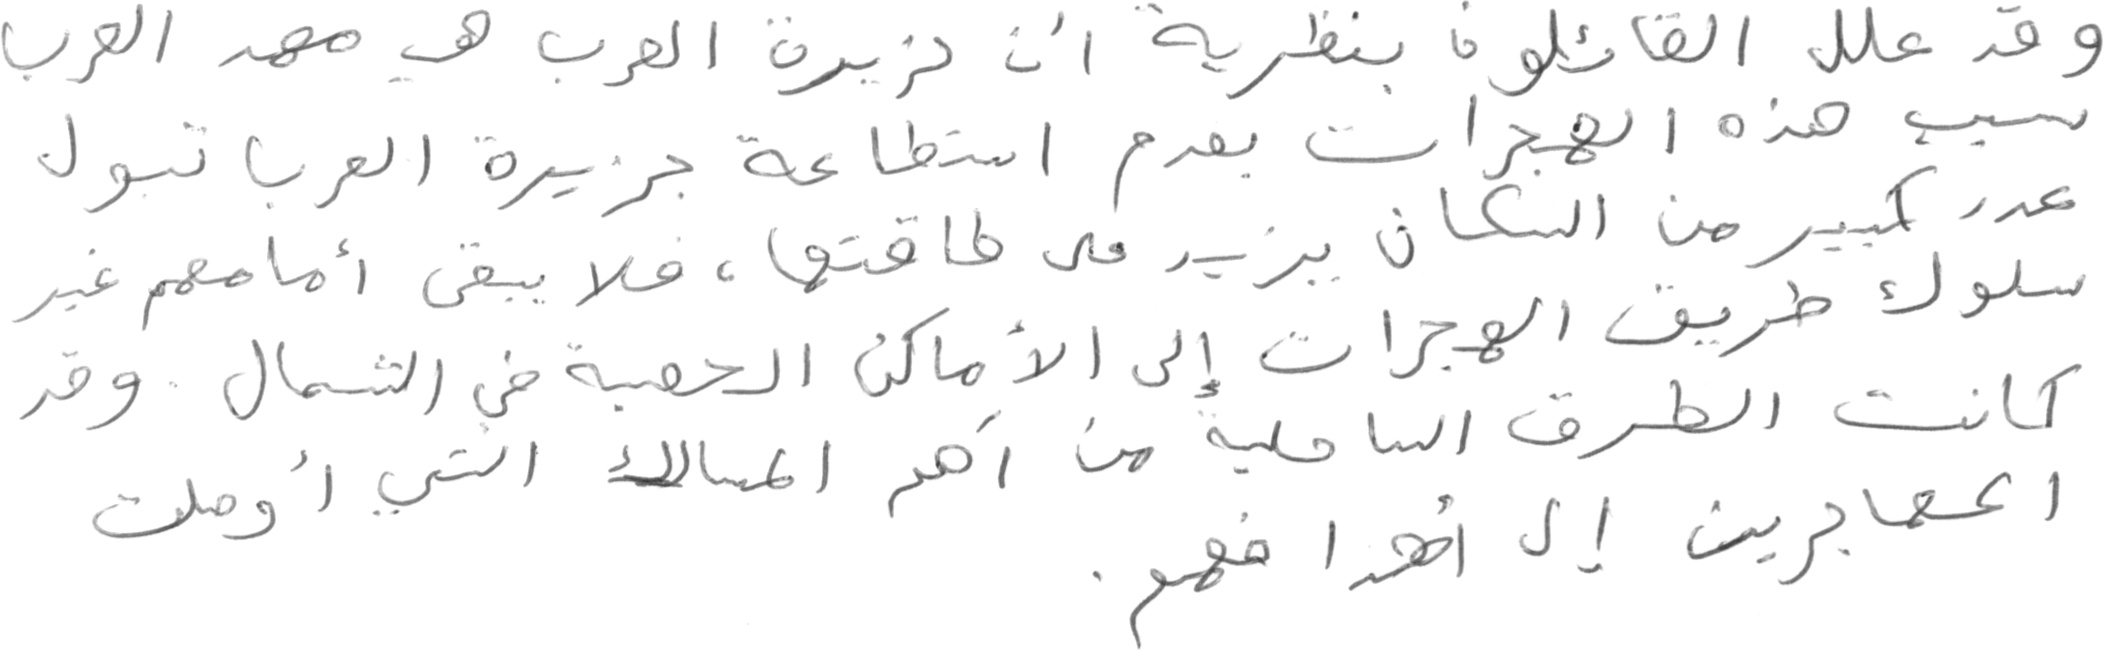 وقد علل القائلون بنظرية أن جزيرة العرب هي مهد العرب
سبب هذه الهجرات بعدم استطاعة جزيرة العرب قبول
عدد كبير من السكان يزيد على طاقتها، فلا يبقى أمامهم غير
سلوك طريق الهجرات إلى الأماكن الخصبة في الشمال. وقد
كانت الطرق الساحلية من أهم المسالك التي أوصلت
المهاجرين إلى أهدافهم.